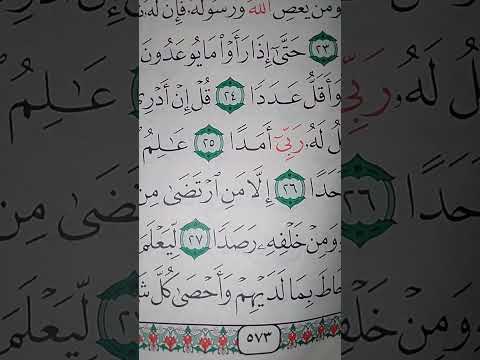 وَمَن يَعْصِ ٱللَّهَ وَرَسُولَهُۥ فَإِنَّ لَهُۥ
٢٣ حَتَّىٰٓ إِذَا رَأَوْا۟ مَا يُوعَدُونَ
وَأَقَلُّ عَدَدًا ٢٤ قُلْ إِنْ أَدْرِى
لُ لَهُۥ رَبِّىٓ أَمَدًا ٢٥ عَٰلِمُ
حَدًا ٢٦ إِلَّا مَنِ ٱرْتَضَىٰ مِن
وَمِنْ خَلْفِهِۦ رَصَدًا ٢٧ لِّيَعْلَمَ
حَاطَ بِمَا لَدَيْهِمْ وَأَحْصَىٰ كُلَّ شَ
٥٧٣